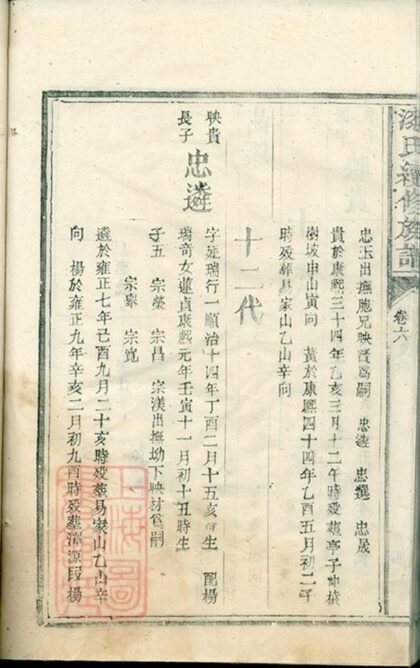 氏續修族譜
卷六
忠玉出撫胞兄映賢爲嗣 忠遴 忠選 忠晟
貴於康熙三十四年乙亥三月十二午時殁葬亭子冲
樹坡申山寅向 黃於康熙四十四年乙酉五月初二子
時殁葬易家山乙山辛向
十二代
映貴
長子
忠遴
字廷瑞行一順治十四年丁酉二月十五亥時生 配楊
瑞奇女蓮貞康熙元年壬寅十一月初十丑時生
子五 宗榮 宗昌 宗渼出撫坳下映材爲嗣
宗寬
遴於雍正七年己酉九月二十亥時殁葬易家山乙山辛
向 楊於雍正九年辛亥二月初九酉時殁葬潭源段楊
上海圖